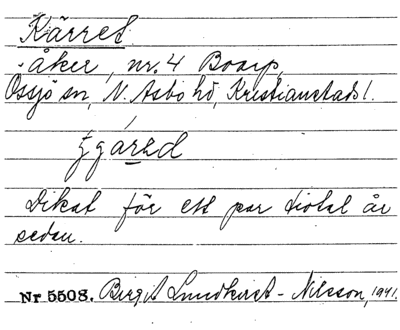 Kärret
åker, nr. 4 Boarp,
Össjö sn, N. Åsbo hd, Kristianstads l.
Dikat för ett par tiotal år
sedan.
Nr 5508. Birgit Lundkvist-Nilsson, 1941.